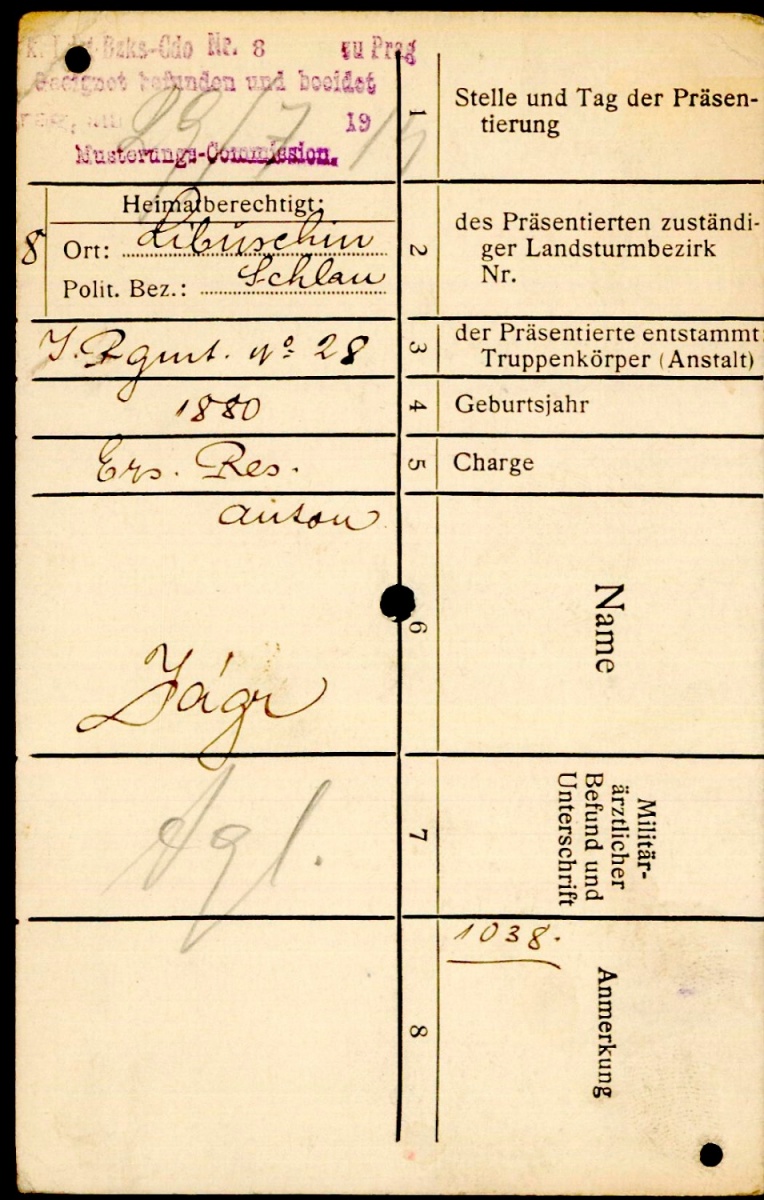 k. k. Ldst-Bzks-Cdo Nr. 8 zu Prag
Geeignet befunden und beeidet
29/7 19 15
Musterungs-Commission.
1 Stelle und Tag der Präsen-
tierung
Heimatberechtigt:
8 Ort: Libuschin
Polit. Bez.: Schlan
2 des Präsentierten zuständi-
ger Landsturmbezirk
Nr.
J. Rgmt. No 28
3 der Präsentierte entstammt:
Truppenkörper (Anstalt)
1880
4 Geburtsjahr
Ers. Res.
5 Charge
Anton
Jágr
6 Name
7 Militär-
ärztlicher
Befund und
Unterschrift
1038.
8 Anmerkung